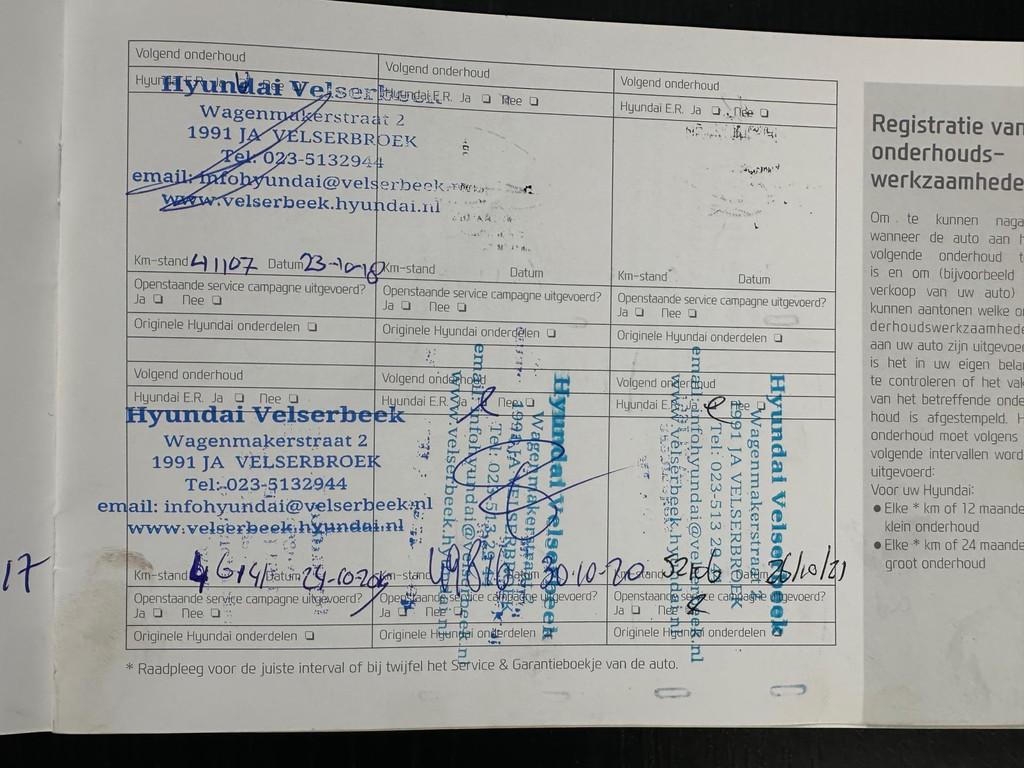 Volgend onderhoud
Hyundai Velserbeek
Wagenmakerstraat 2
1991 JA VELSERBROEK
Tel: 023-5132944
email: infohyundai@velserbeek.
www.velserbeek.hyundai.nl
Km-stand 41107 Datum 23-10-18
Openstaande service campagne uitgevoerd?
Ja Nee
Originele Hyundai onderdelen
Volgend onderhoud
Hyundai E.R. Ja Nee
Km-stand Datum
Openstaande service campagne uitgevoerd?
Ja Nee
Originele Hyundai onderdelen
Volgend onderhoud
Hyundai E.R. Ja Nee
Km-stand Datum
Openstaande service campagne uitgevoerd?
Ja Nee
Originele Hyundai onderdelen
Volgend onderhoud
Hyundai E.R. Ja Nee
Hyundai Velserbeek
Wagenmakerstraat 2
1991 JA VELSERBROEK
Tel: 023-5132944
email: infohyundai@velserbeek.nl
www.velserbeek.hyundai.nl
17
Km-stand Datum
Openstaande service campagne uitgevoerd?
Ja Nee
Originele Hyundai onderdelen
Volgend onderhoud
Hyundai E.R. Nee
Hyundai Velserbeek
Wagenmakerstraat
1991 JA VELSERBROEK
Tel: 023-513 29 44
www.velserbeek.hyundai.nl
30-10-20
Openstaande service campagne uitgevoerd?
Ja Nee
Originele Hyundai onderdelen
Volgend onderhoud
Hyundai E.R. Ja Nee
Hyundai Velserbeek
Wagenmakerstraat 2
1991 JA VELSERBROEK
Tel: 023-513 29 44
email: infohyundai@velserbeek.nl
www.velserbeek.hyundai.nl
26/10/21
Openstaande service campagne uitgevoerd?
Ja Nee
Originele Hyundai onderdelen
* Raadpleeg voor de juiste interval of bij twijfel het Service & Garantieboekje van de auto.
Registratie van
onderhouds-
werkzaamhede
Om te kunnen naga
wanneer de auto aan h
volgende onderhoud t
is en om (bijvoorbeeld
verkoop van uw auto)
kunnen aantonen welke o
derhoudswerkzaamhede
aan uw auto zijn uitgevoe
is het in uw eigen bela
te controleren of het vak
van het betreffende onde
houd is afgestempeld. H
onderhoud moet volgens
volgende intervallen word
uitgevoerd:
Voor uw Hyundai:
• Elke * km of 12 maande
klein onderhoud
• Elke * km of 24 maande
groot onderhoud